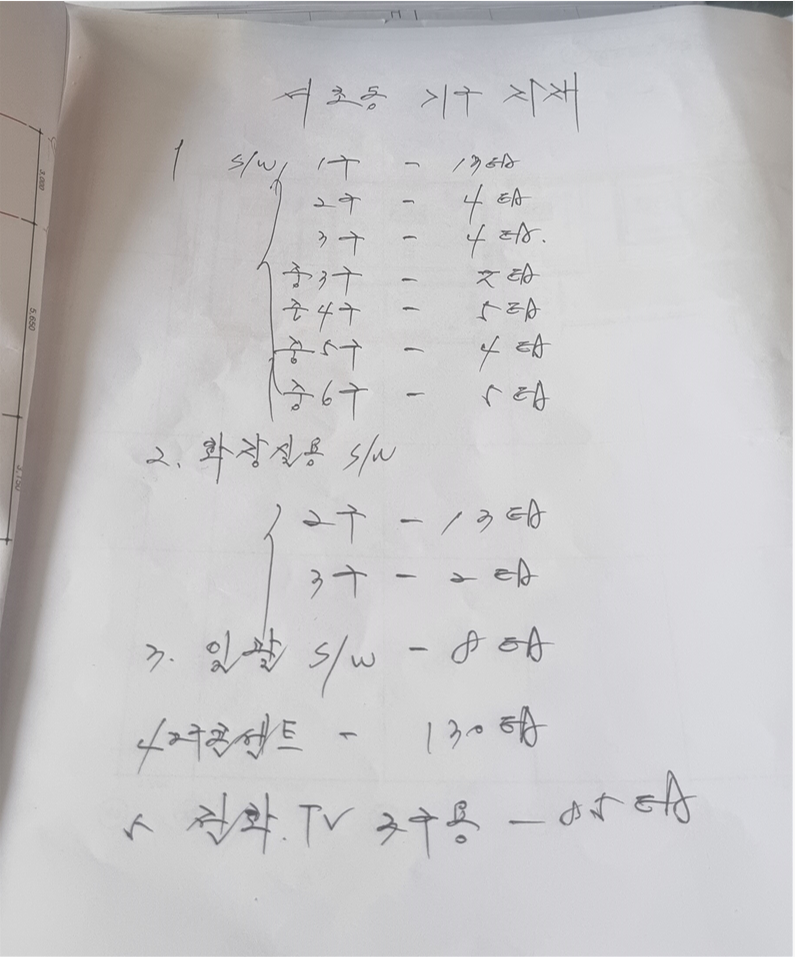 서초동 기구 자재
1 S/W 1구 - 13EA
2구 - 4EA
3구 - 4EA.
중3구 - 2EA
중4구 - 5EA
중5구 - 4EA
중6구 - 5EA
2. 화장실용 S/W
2구 - 13EA
3구 - 2EA
3. 일괄 S/W - 8EA
4 2구콘센트 - 130EA
5 전화.TV 3구용 - 85EA
3,000
5,650
3,150